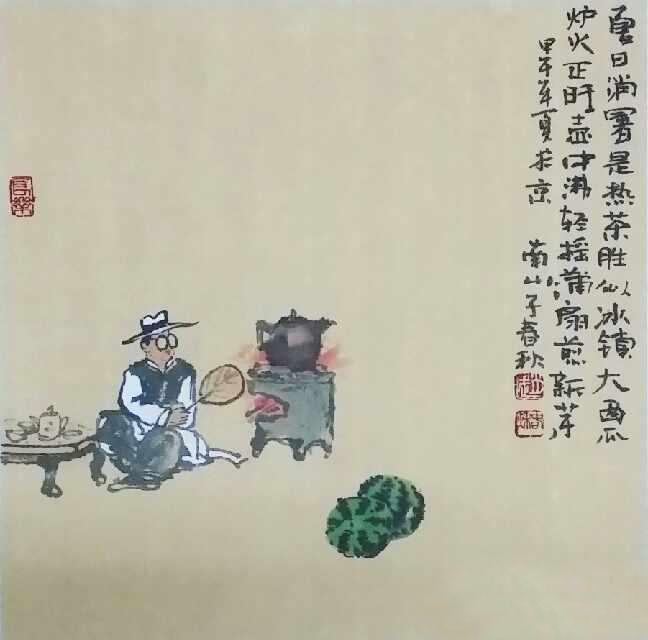 夏日消署是热茶胜似冰镇大西瓜
炉火正旺壶中沸轻摇蒲扇煎新芽
甲午年夏京
南山子春秋